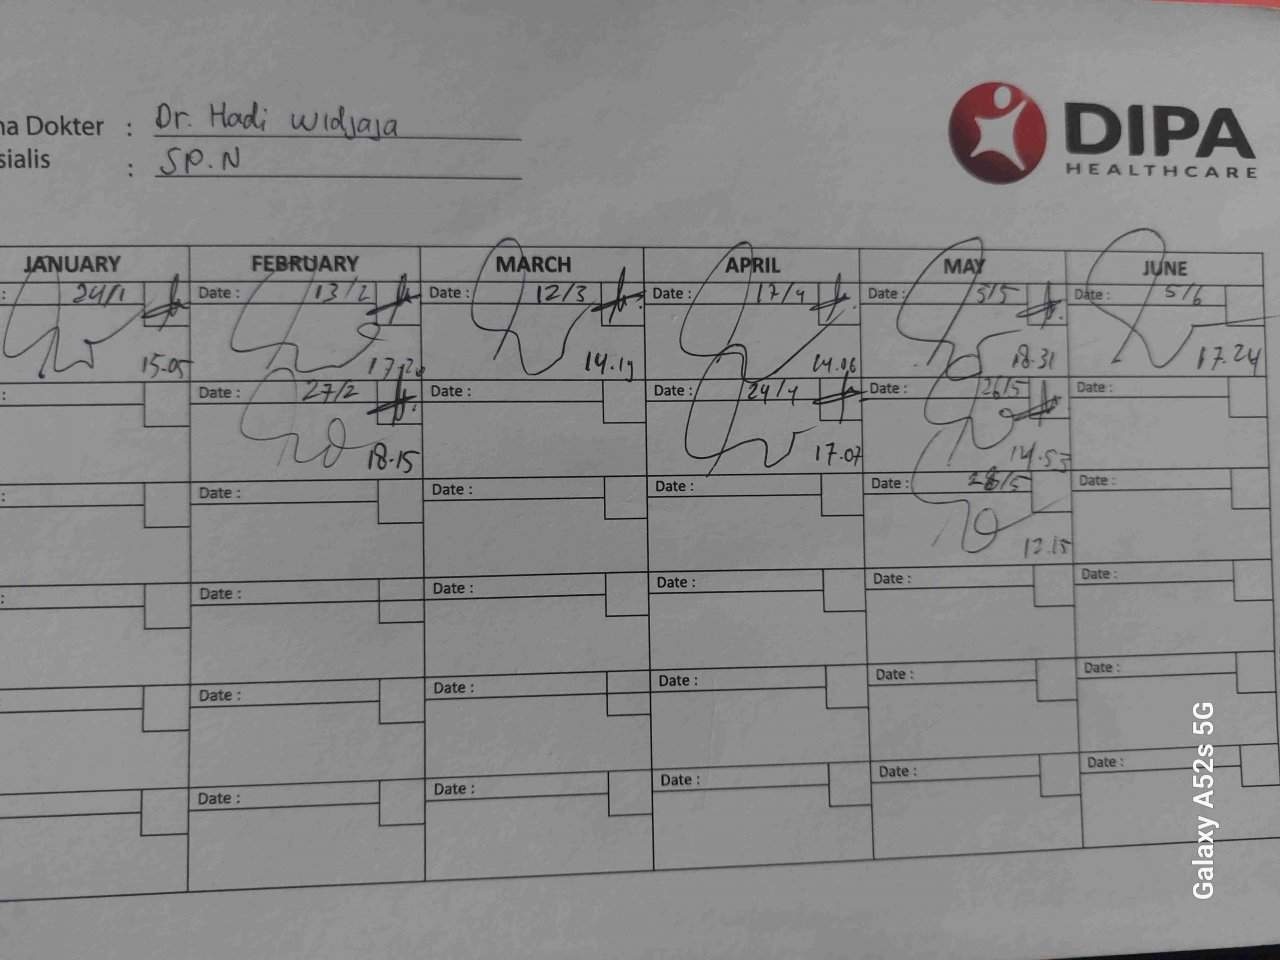 na Dokter : Dr. Hadi Widjaja
sialis : SP.N
DIPA
HEALTHCARE
JANUARY FEBRUARY MARCH APRIL MAY JUNE
: 24/1 Date : 13/2 Date : 12/3 Date : 17/4 Date : 5/5 Date : 5/6
15.05 17.20 14.19 14.06 18.31 17.24
: Date : 27/2 Date : Date : 24/4 Date : 26/5 Date :
18.15 17.07 14.53
: Date : Date : Date : Date : 28/5 Date :
12.15
: Date : Date : Date : Date : Date :
Date : Date : Date : Date : Date :
Date : Date : Date : Date : Date :
Galaxy A52s 5G